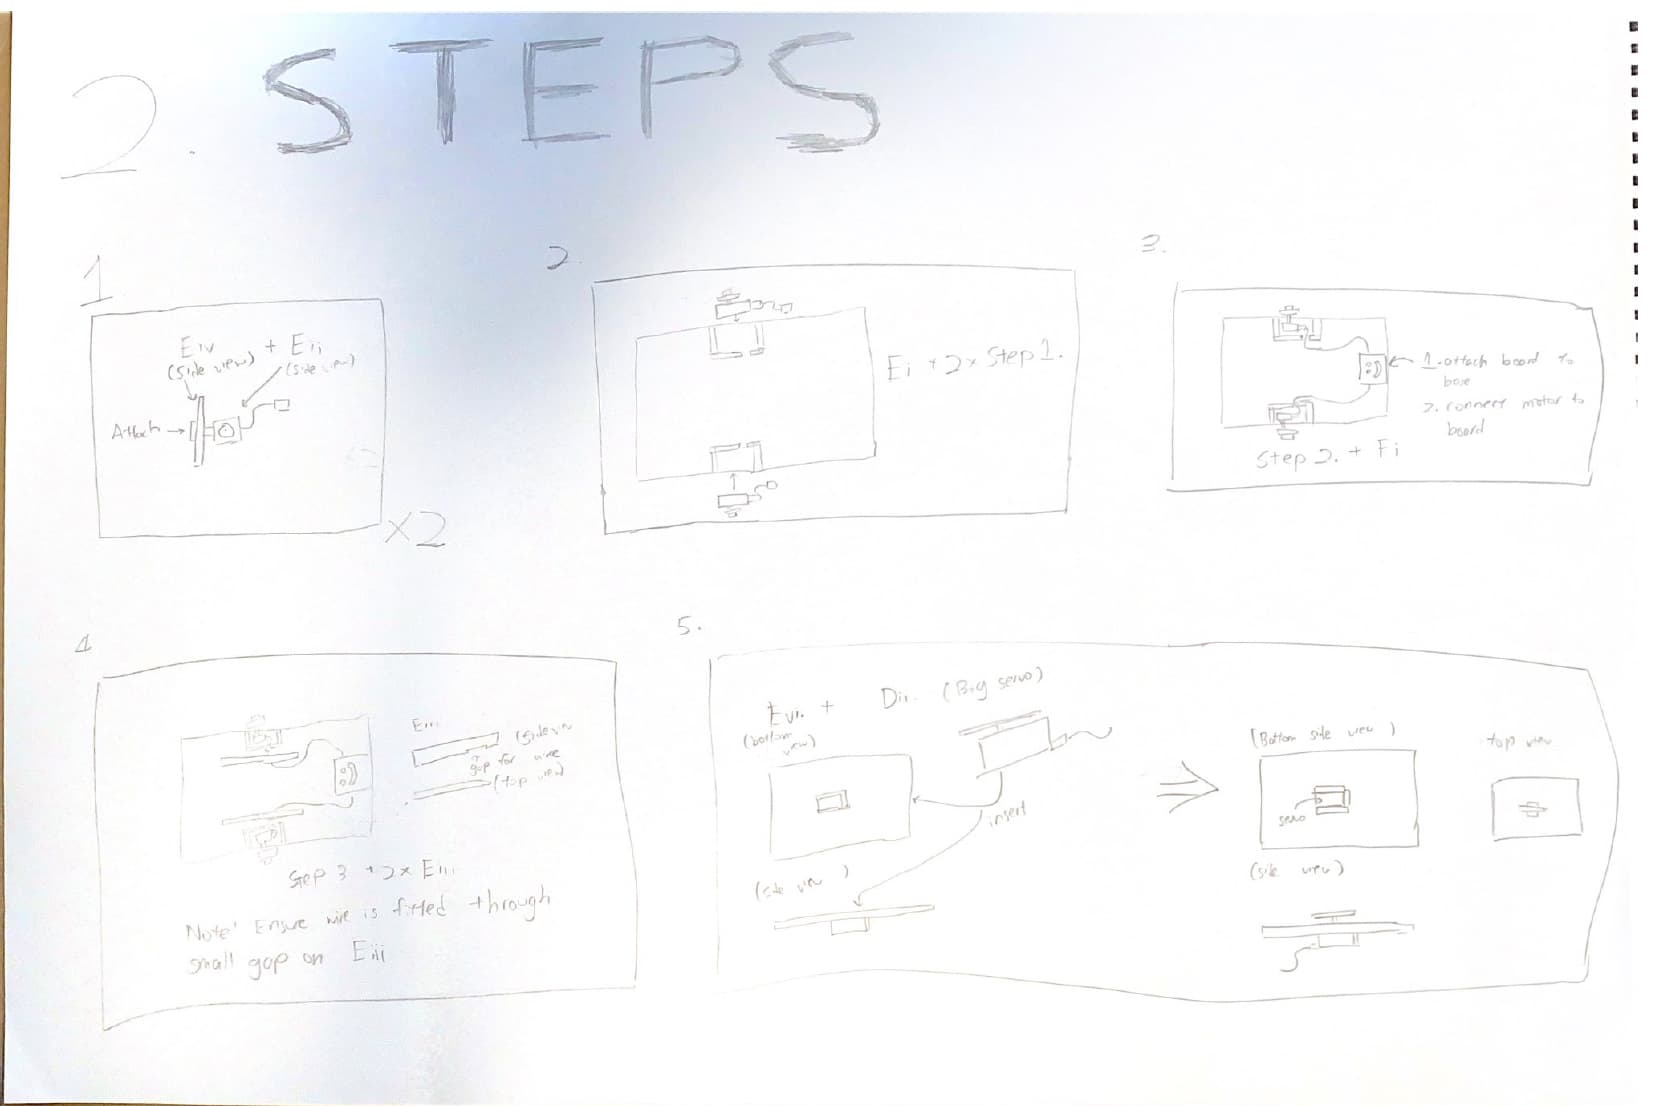 2. STEPS
1
Eiv + Eii
(side view) (side view)
Attach →
x2
2.
Ei + 2x Step 1.
3.
1. attach board to
base
2. connect motor to
board
Step 2. + Fi
4
Eiii
(side view
gap for wire
(top view)
Step 3 + 2x Eiii
Note! Ensure wire is fitted through
small gap on Eiii
5.
Evi. + Dii. (Big servo)
(bottom
view)
insert
(side view)
(Bottom side view)
top view
servo
(side view)